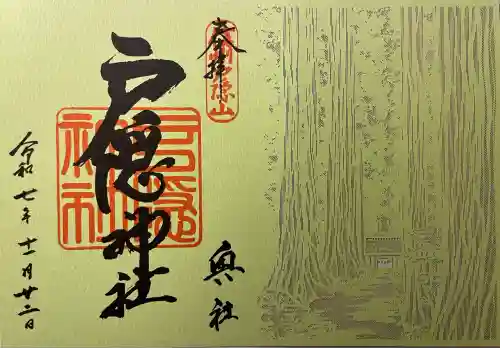 奉拝
戸隠山
奥社
戸隠神社
戸隠神社
令和七年十一月廿二日